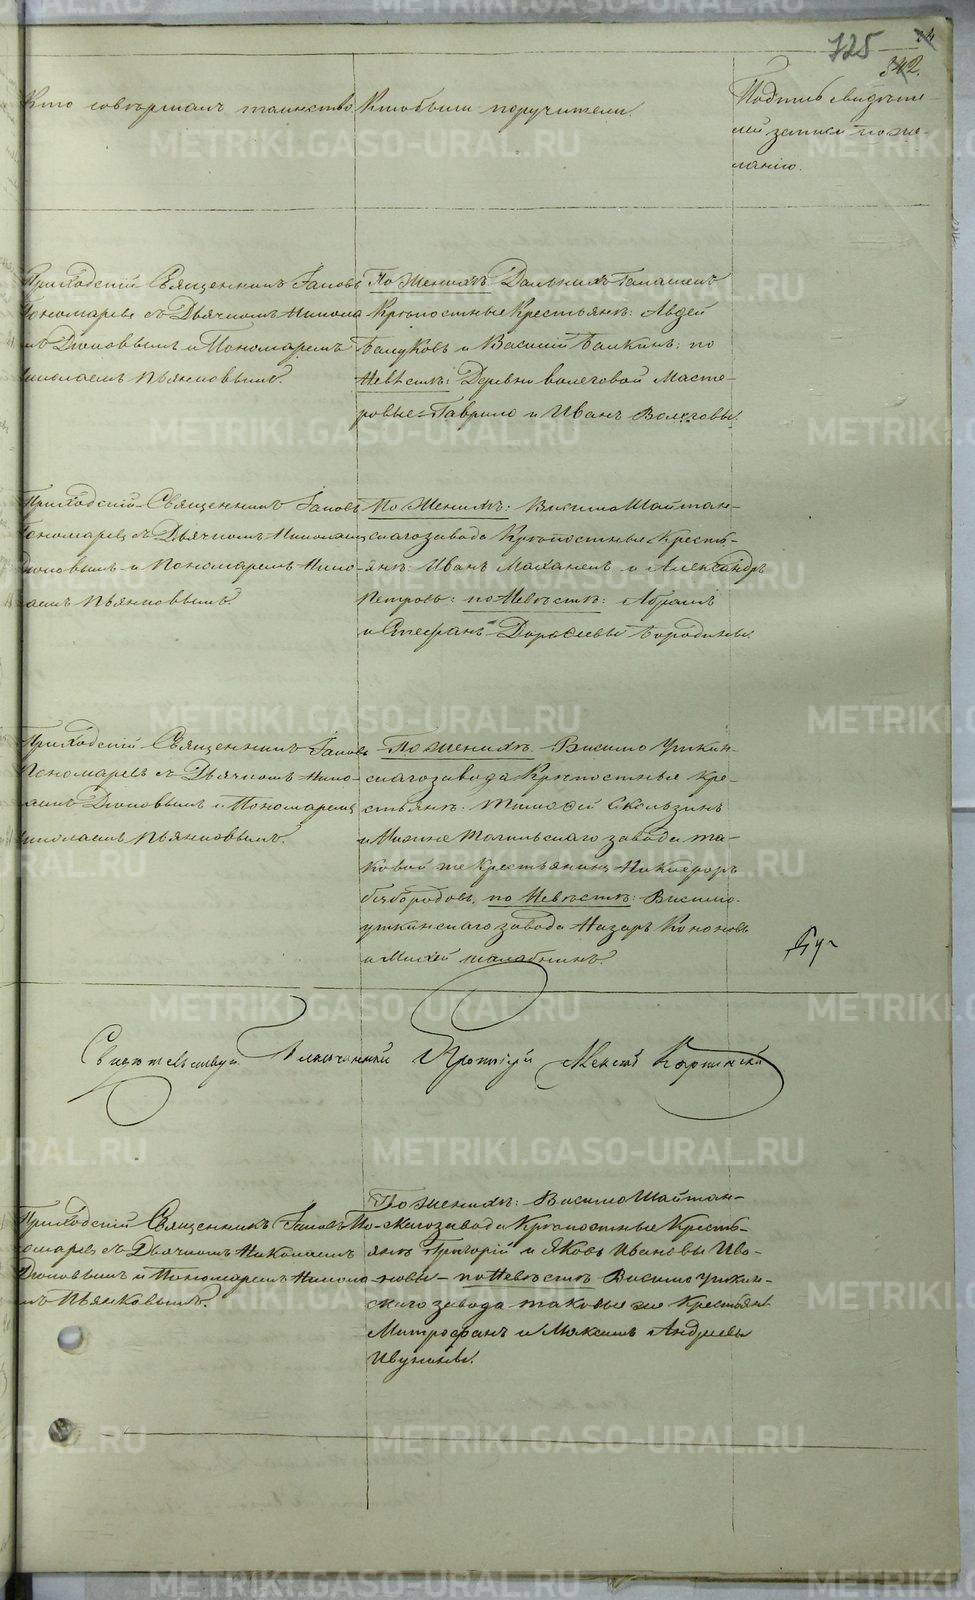 725
342.
Кто совершалъ таинство
Кто были поручители.
Подпись свидѣте-
лей записи по же-
ланію.
Приходскій Священникъ Іаковъ
Пономаревъ съ Дьячкомъ Никола
и Пономаремъ
Николаемъ Пьянковымъ.
По Женихѣ: Дальнихъ Галашекъ
Крѣпостные Крестьяне: Авдей
и Василій Балкинъ: по
Невѣстѣ: Деревни Волеговой Масте-
ровые Гаврило и Иванъ Волеговы.
Приходскій Священникъ Іаковъ
Пономаревъ съ Дьячкомъ Николаемъ
и Пономаремъ Нико-
лаемъ Пьянковымъ.
По Женихѣ: Висимо Шайтан-
скаго завода Крѣпостные Кресть-
яне: Иванъ и Александръ
Петровъ: по Невѣстѣ: Абрамъ
и Стефанъ Дорофеевы Бородины.
Приходскій Священникъ Іаковъ
Пономаревъ съ Дьячкомъ Нико-
лаемъ и Пономаремъ
Николаемъ Пьянковымъ.
По Женихѣ Висимо Уткин-
скаго завода Крѣпостные кре-
стьяне: Тимофей Скользинъ
и Нижне Тагильскаго завода та-
ковой же Крестьянинъ Никифоръ
Безбородовъ, по Невѣстѣ: Висимо-
уткинскаго завода Назаръ Кононовъ
и Михей
Свидѣтельствуй Благочинный Протоіерей Алексій
Приходскій Священникъ Іаковъ По-
номаревъ съ Дьячкомъ Николаемъ
и Пономаремъ Никола
емъ Пьянковымъ.
По Женихѣ: Висимо Шайтан-
скаго завода Крѣпостные Кресть-
яне Григорій и Яковъ Ивановы Иво-
новы по Невѣстѣ Висимо Уткин-
скаго завода таковые же Крестьян
Митрофанъ и Максимъ Андреевы
Ивунины.
METRIKI.GASO-URAL.RU